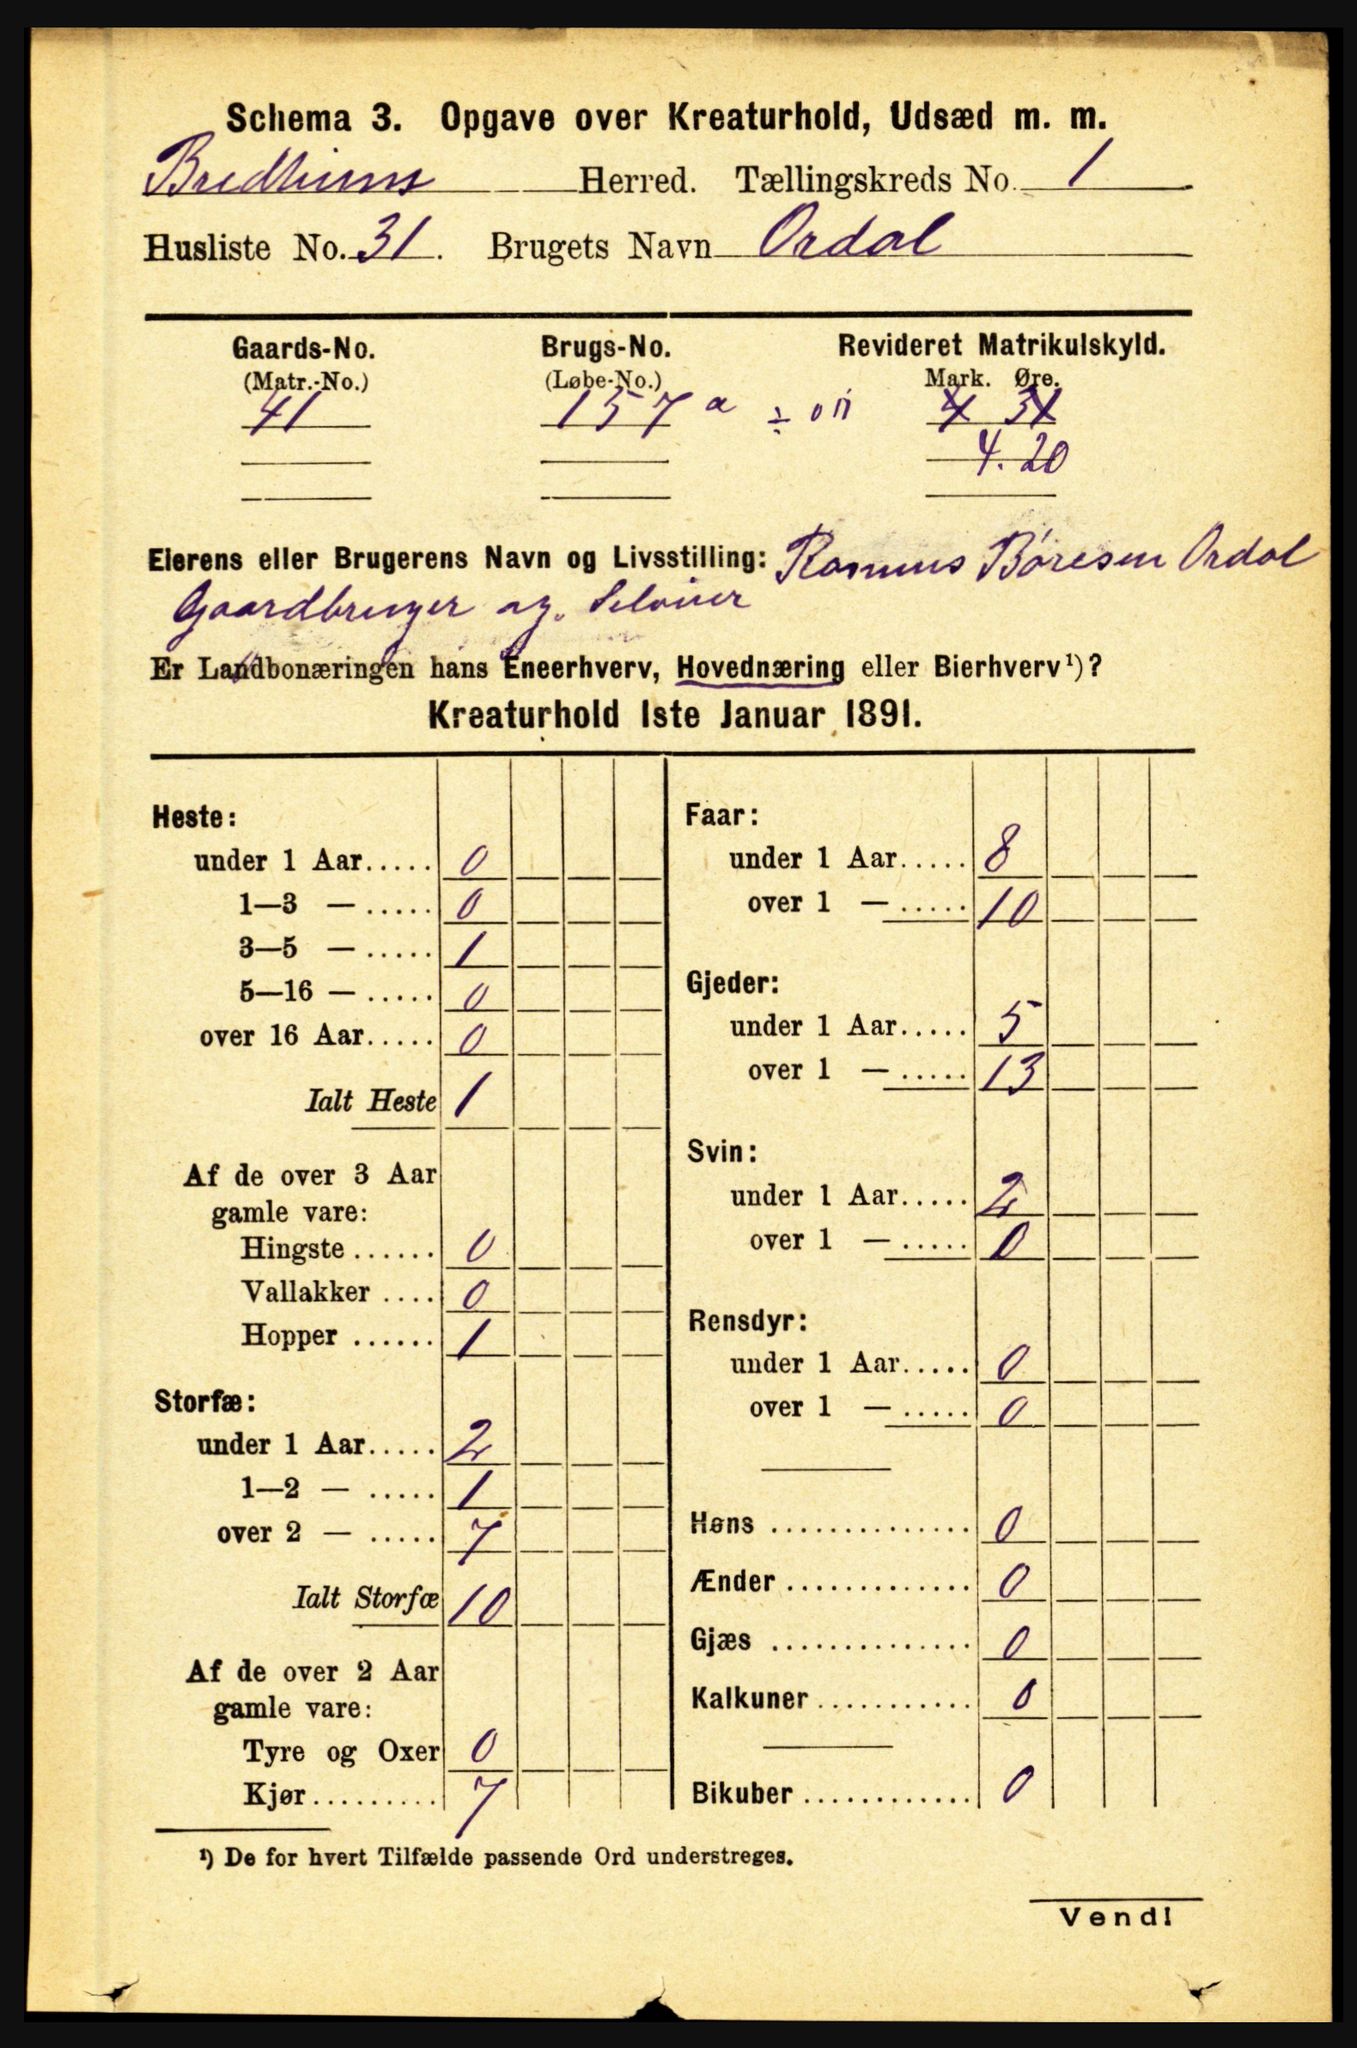 Schema 3. Opgave over Kreaturhold, Udsæd m. m.
Bredheims Herred. Tællingskreds No. 1
Husliste No. 31. Brugets Navn Ordal
Gaards-No. Brugs-No. Revideret Matrikulskyld.
(Matr.-No.) (Løbe-No.) Mark. Øre.
41 157 a ÷ 011 4 31
4.20
Eierens eller Brugerens Navn og Livsstilling: Rasmus Børesen Ordal
Gaardbruger og Seleier
Er Landbonæringen hans Eneerhverv, Hovednæring eller Bierhverv¹)?
Kreaturhold 1ste Januar 1891.
Heste:
under 1 Aar..... 0
1—3 — ..... 0
3—5 — ..... 1
5—16 — ..... 0
over 16 Aar..... 0
Ialt Heste 1
Af de over 3 Aar
gamle vare:
Hingste ...... 0
Vallakker .... 0
Hopper ...... 1
Storfæ:
under 1 Aar..... 2
1—2 — ..... 1
over 2 — ..... 7
Ialt Storfæ 10
Af de over 2 Aar
gamle vare:
Tyre og Oxer 0
Kjør......... 7
Faar:
under 1 Aar..... 8
over 1 — ..... 10
Gjeder:
under 1 Aar..... 5
over 1 — ..... 13
Svin:
under 1 Aar..... 2
over 1 — ..... 0
Rensdyr:
under 1 Aar..... 0
over 1 — ..... 0
Høns .............. 0
Ænder ............. 0
Gjæs .............. 0
Kalkuner ........... 0
Bikuber ............ 0
¹) De for hvert Tilfælde passende Ord understreges.
Vend!